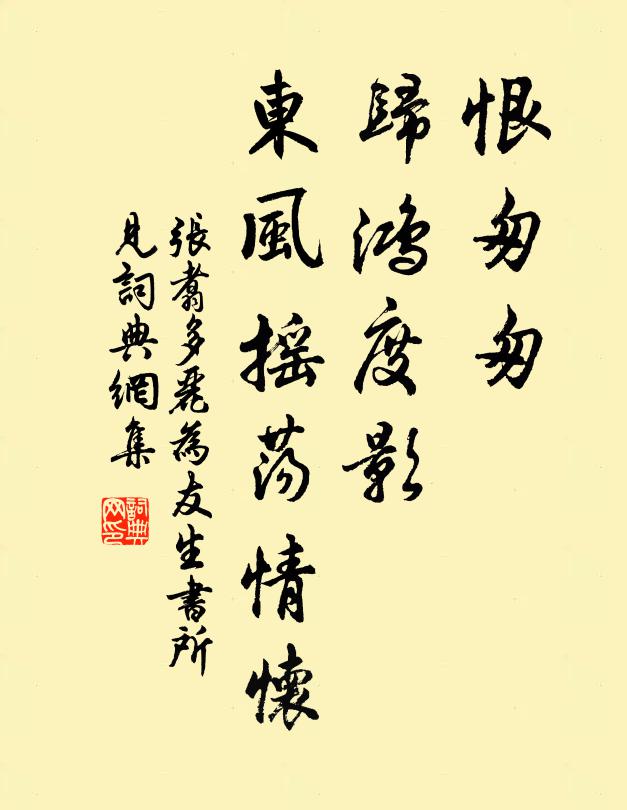 恨匆匆
歸鴻度影
東風摇蕩情懷
張翥多麗為友生書所
見詞典網集
詞典網印